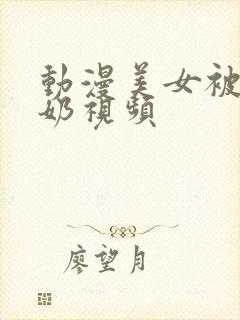 動漫美女被
奶視頻
廖望月